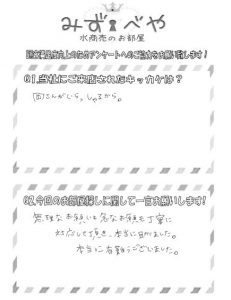 みずべや
水商売のお部屋
Q1.当社にご来店されたキッカケは?
岡さんがいらっしゃるから。
Q2.今回のお部屋探しに関して一言お願いします!
無理なお願いも急なお願も丁寧に
対応して頂き、本当に助かりました。
本当に有難うございました。